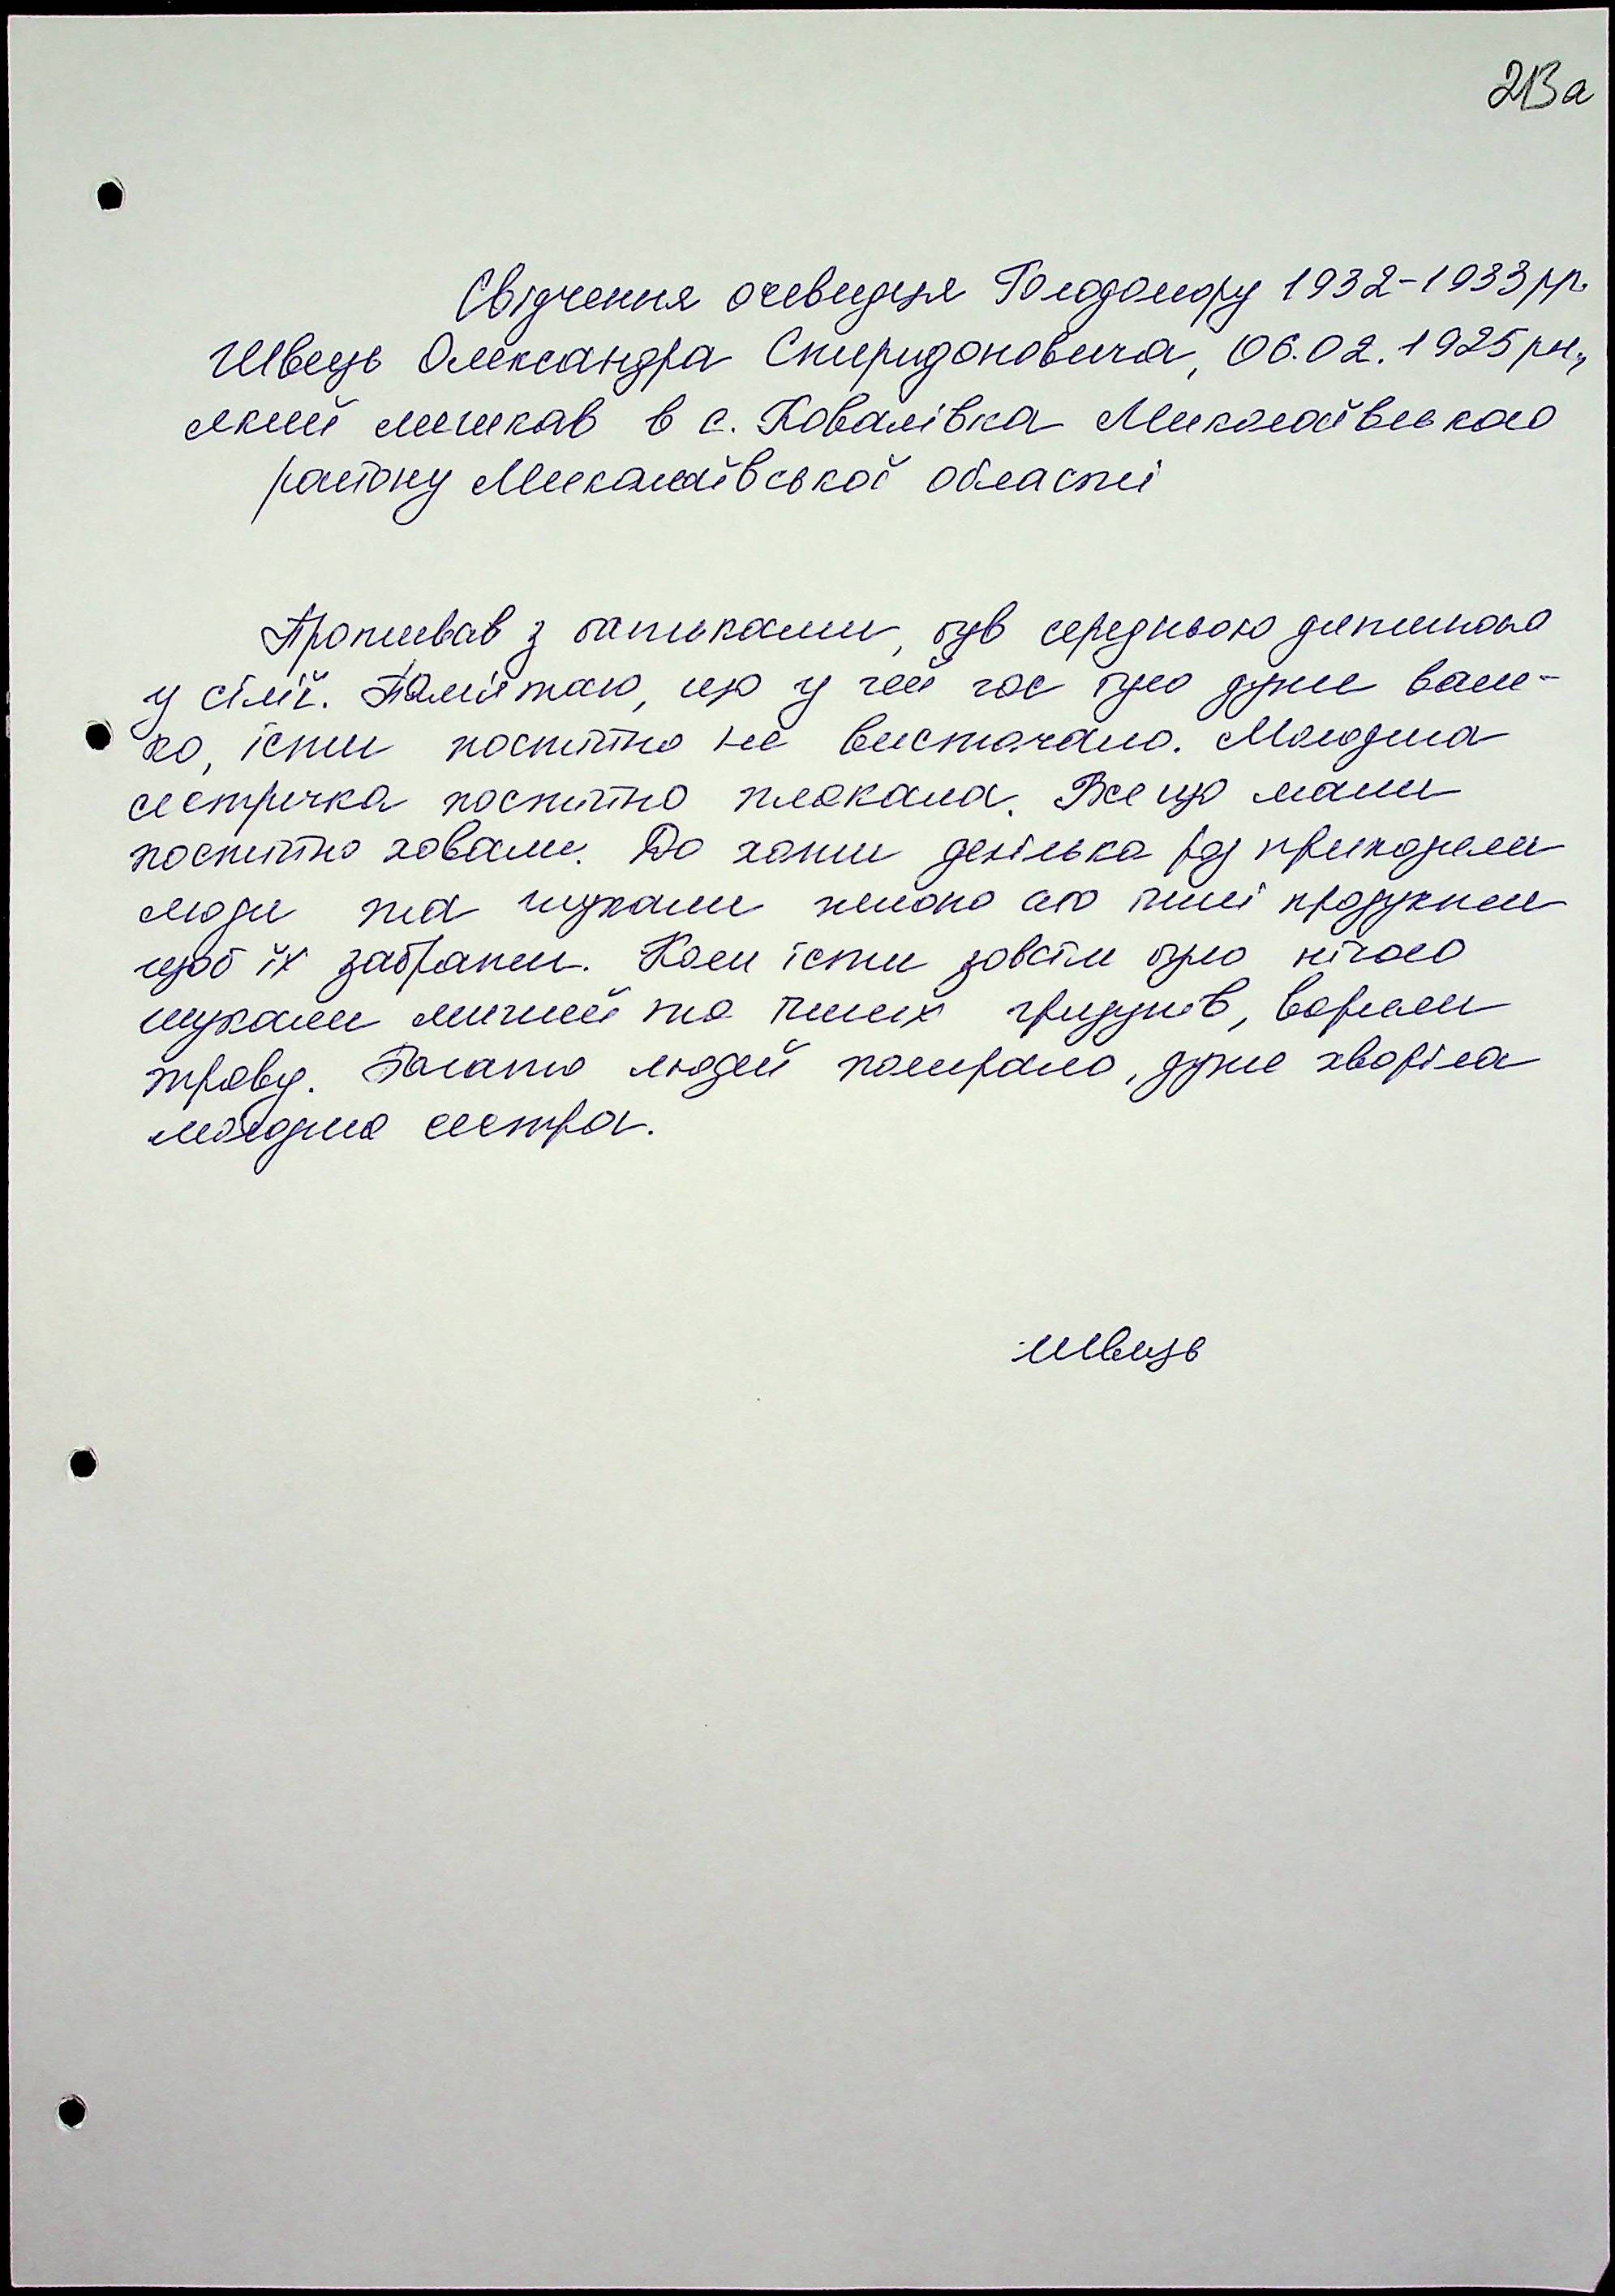 213а
Свідчення очевидця Голодомору 1932-1933 рр.
Швець Олександра Спиридоновича, 06.02.1925 рн.,
який мешкав в с. Ковалівка Миколаївського
району Миколаївської області
Проживав з батьками, був середньою дитиною
у сім'ї. Пам'ятаю, що у цей час було дуже важ-
ко, їсти постійно не вистачало. Молодша
сестричка постійно плакала. Все що мали
постійно ховали. До хати декілька раз приходили
люди та шукали зерно або інші продукти
щоб їх забрати. Коли їсти зовсім було нічого
шукали мишей та інших гризунів, варили
траву. Багато людей помирало, дуже хворіла
молодша сестра.
Швець